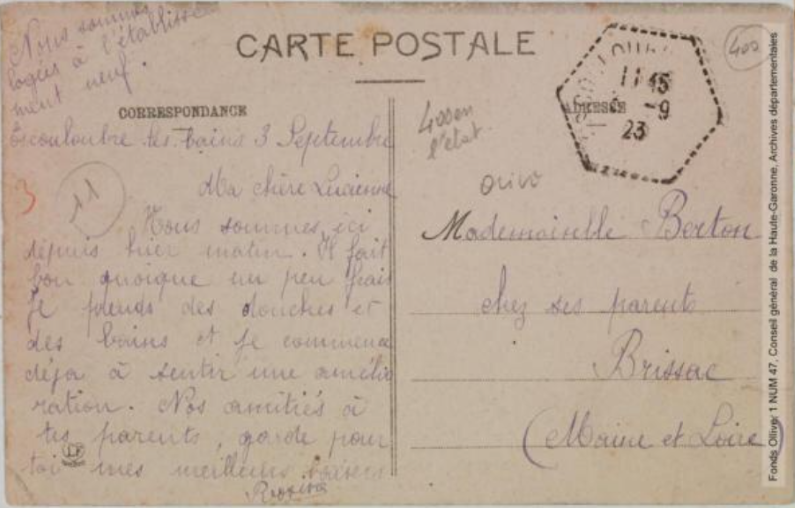 Nous sommes
logées à l'établisse
ment neuf.
CARTE POSTALE
CORRESPONDANCE
Escouloubre les bains 3 Septembre
Ma chère Lucienne
Nous sommes ici
depuis hier matin. Il fait
bon quoique un peu frais
Je prends des douches et
des bains et je commence
déja à sentir une amélio
ration. Nos amitiés à
tes parents, garde pour
toi mes meilleurs baisers
3
11
400en
l'état.
400
ADRESSE
11 45
-9
23
Mademoiselle Berton
chez ses parents
Brissac
(Maine et Loire)
Fonds Ollivier 1 NUM 47, Conseil général de la Haute-Garonne, Archives départementales